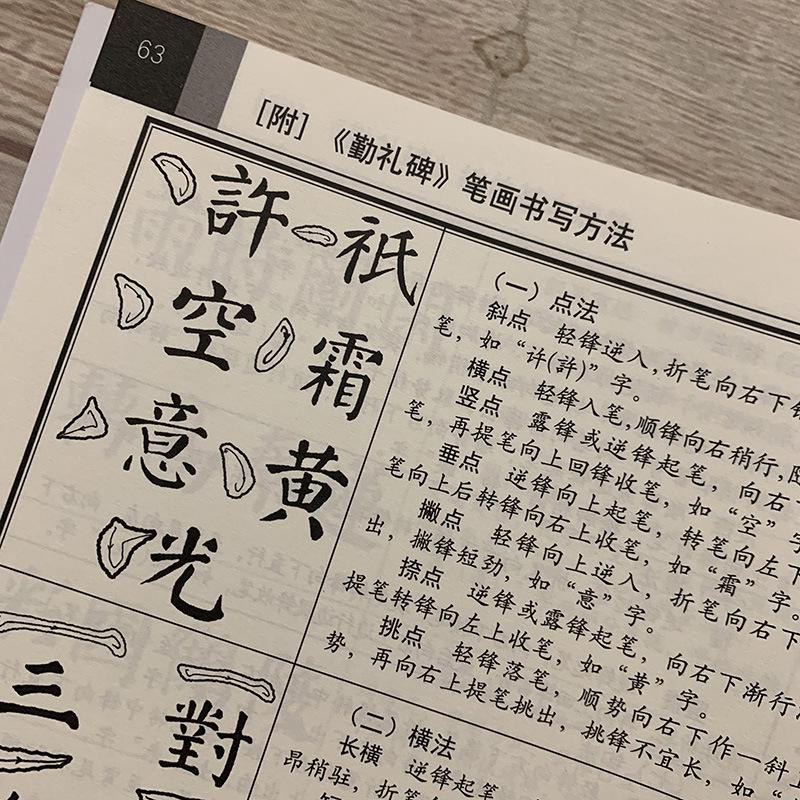 63
[附] 《勤礼碑》笔画书写方法
許 祇
空 霜
意 黄
光
三 對
（一）点法
斜点 轻锋逆入，折笔向右下
笔，如“许(許)”字。
横点 轻锋入笔，顺锋向右稍行，
竖点 露锋或逆锋起笔，向右下
笔，再提笔向上回锋收笔，如“空”字
垂点 逆锋向上起笔，转笔向左下
笔向上后转锋向右上收笔，如“霜”字。
撇点 轻锋向上逆入，折笔向右下
出，撇锋短劲，如“意”字。
捺点 逆锋或露锋起笔，向右下渐行
提笔转锋向左上收笔，如“黄”字。
挑点 轻锋落笔，顺势向右下作一斜
势，再向右上提笔挑出，挑锋不宜长，如“
（二）横法
长横 逆锋起笔
昂稍驻，折笔